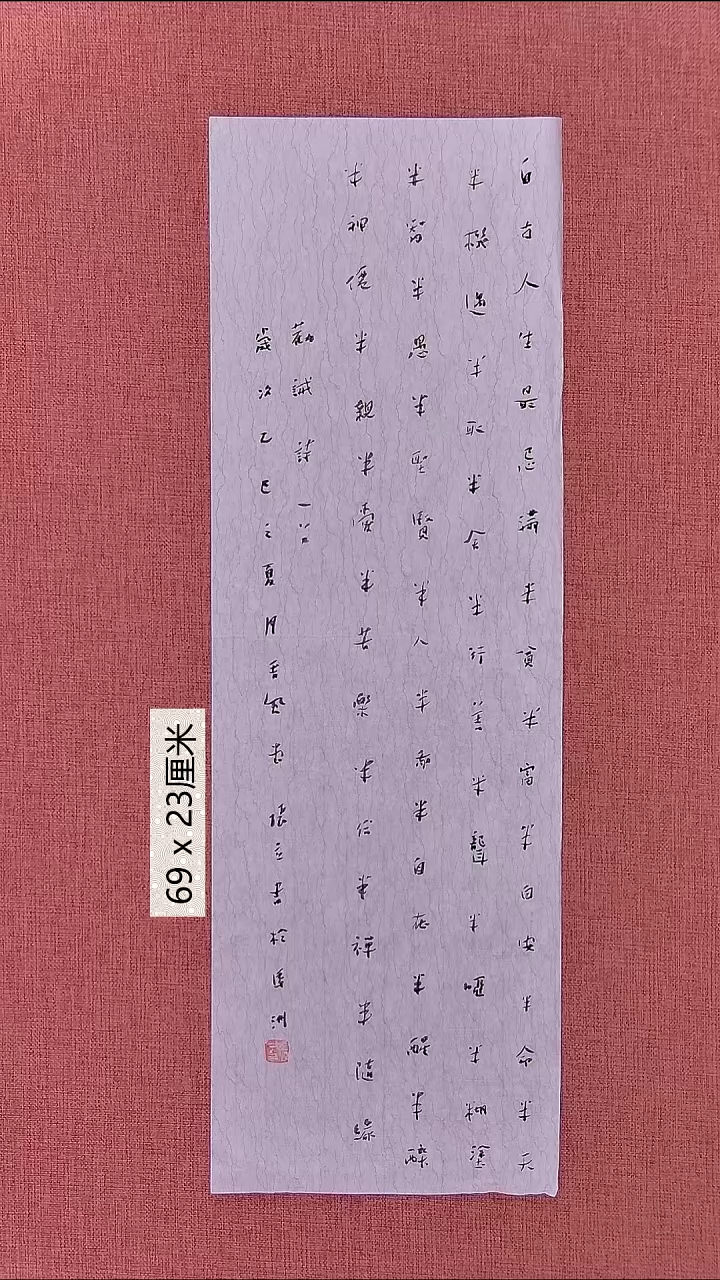 自古人生最忌滿半貧半富半自安半命半天
半機遇半取半舍半行善半聾半啞半糊塗
半智半愚半聖賢半人半我半自在半醒半醉
半神僊半親半愛半苦樂半俗半禪半隨緣
勸誡詩一首
歲次乙巳之夏月 書於 洲
69 x 23厘米